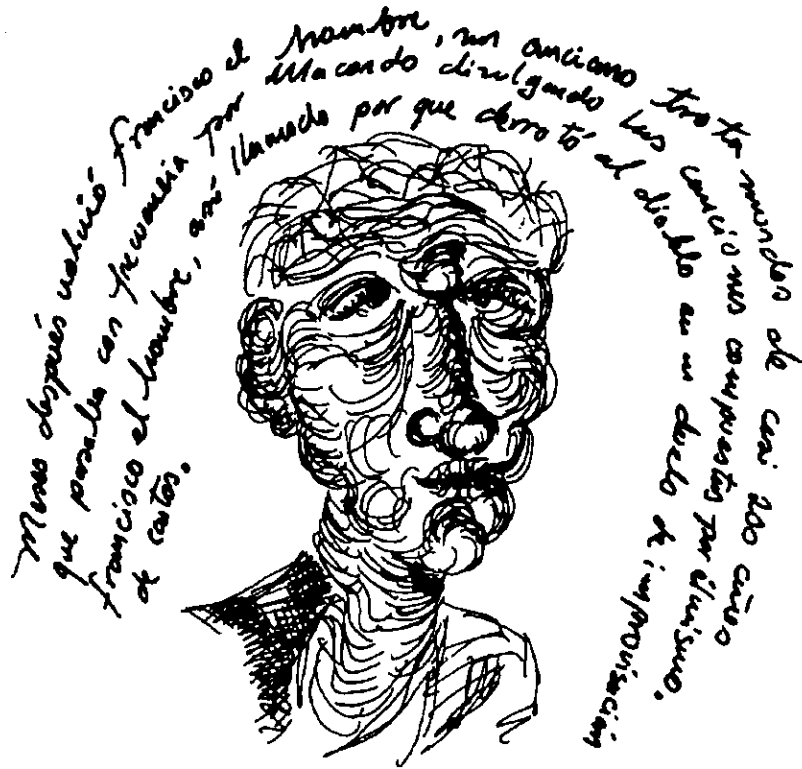 Meses después volvió Francisco el hombre, un anciano trota mundos de casi 200 años
que pasaba con frecuencia por Macondo divulgando las canciones compuestas por él mismo.
Francisco el hombre, así llamado por que derrotó al diablo en un duelo de improvisación
de cantos.